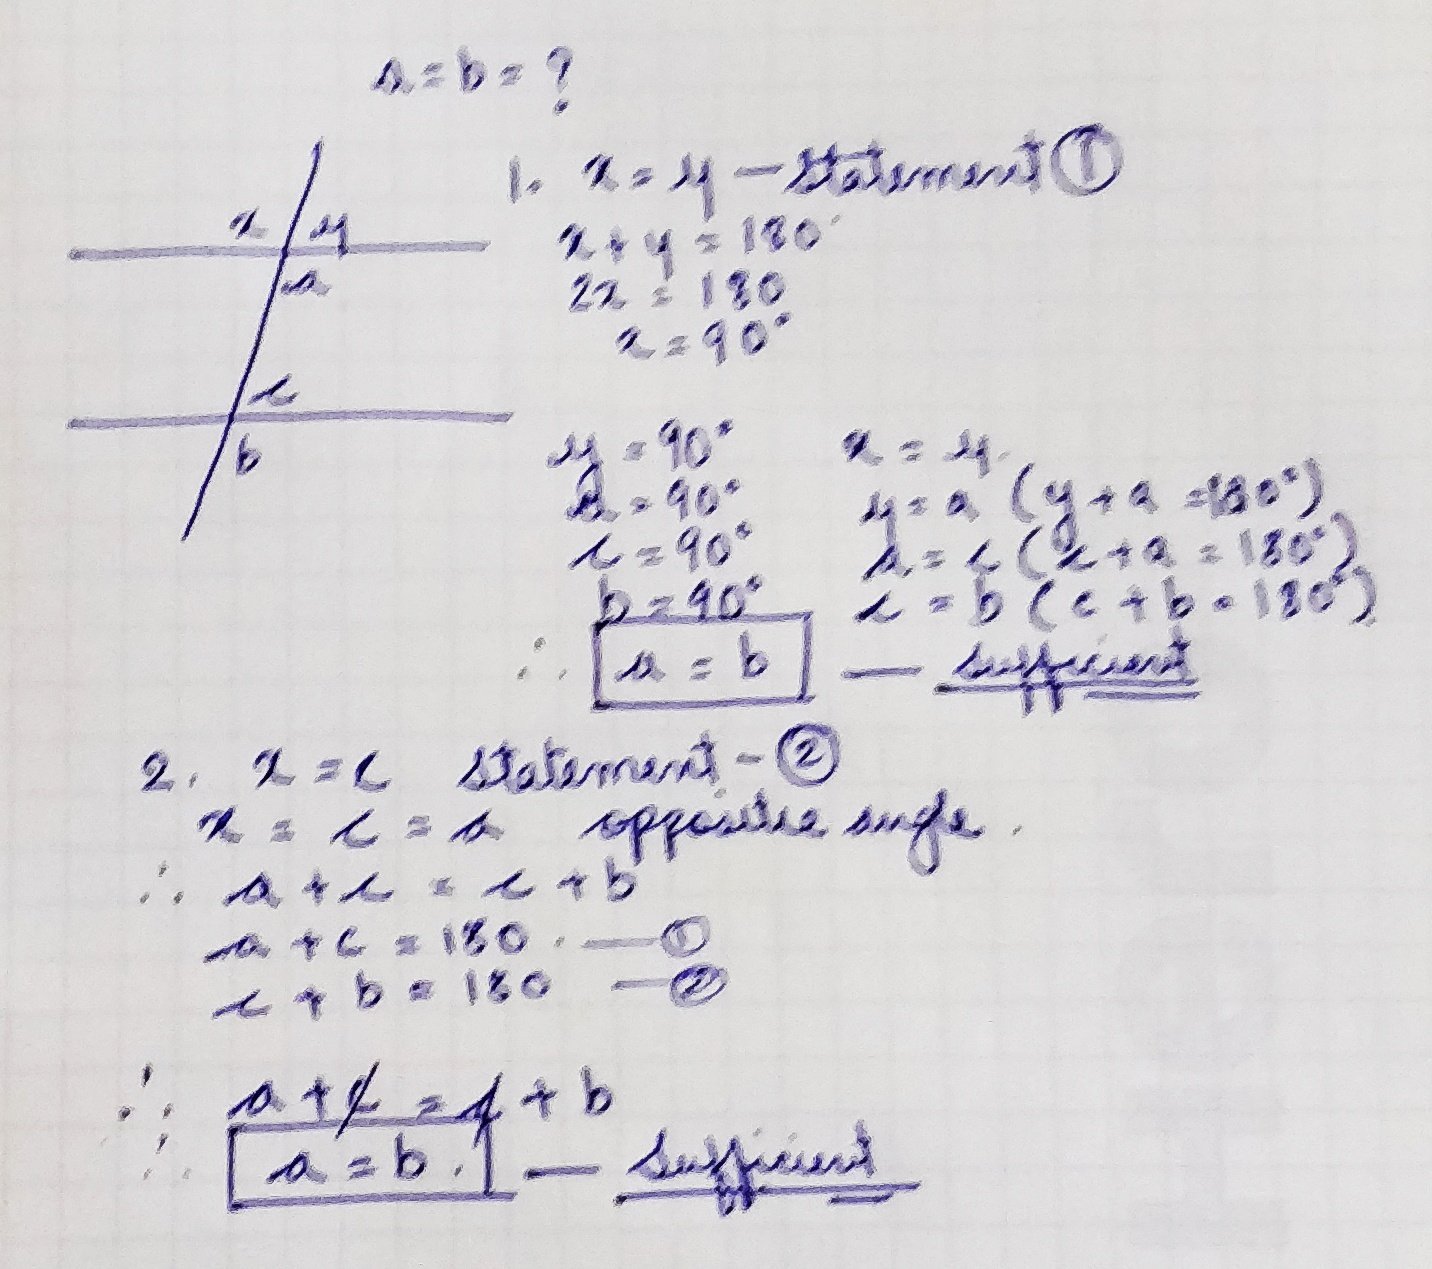 a = b = ?
1. x = y — Statement ①
x + y = 180°
2x = 180
x = 90°
x y
a
c
b
y = 90° x = y
a = 90° y = a (y + a = 180°)
c = 90° a = c (c + a = 180°)
b = 90° c = b (c + b = 180°)
∴ a = b — sufficient
2. x = c Statement - ②
x = c = a opposite angle.
∴ a + c = c + b
a + c = 180. — ①
c + b = 180 — ②
∴ a + c = c + b
∴ a = b. — Sufficient